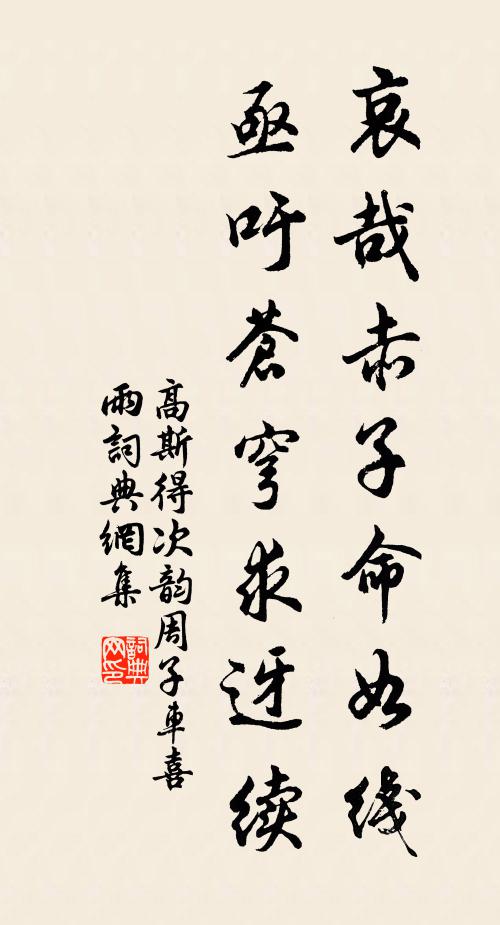 哀哉赤子命如綫
亟吁蒼穹求迓續
高斯得次韵周子車喜
雨詞典網集
詞典网印